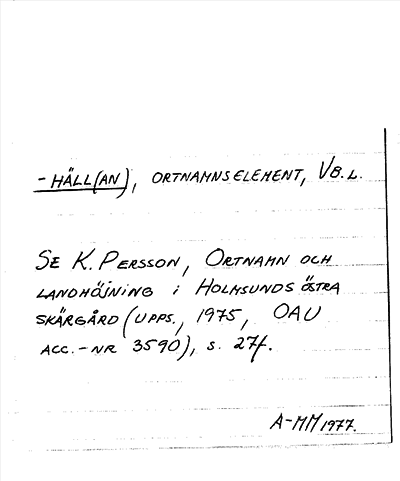 -HÄLL(AN), ORTNAMNSELEMENT, VB.L.
SE K. PERSSON, ORTNAMN OCH
LANDHÖJNING i HOLMSUNDS ÖSTRA
SKÄRGÅRD (UPPS., 1975, OAU
ACC.-NR 3590), s. 27f.
A-MM 1977.